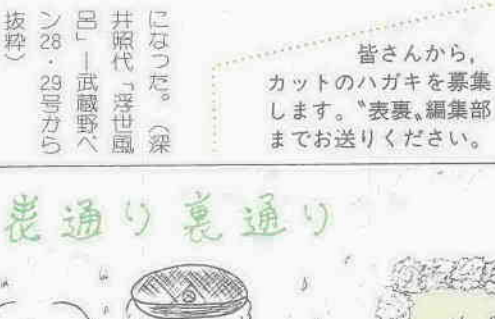 になった。（深
井照代「浮世風
呂」―武蔵野ペ
ン28・29号から
抜粋）
皆さんから，
カットのハガキを募集
します。〝表裏〟編集部
までお送りください。
表通り裏通り